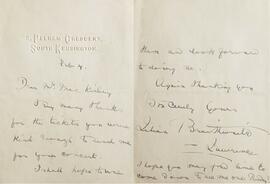 2, PELHAM CRESCENT,
SOUTH KENSINGTON.
Feb 4.
Dear Mr Mac Kinlay
Very many thanks
for the tickets you were
kind enough to send me
for your concert.
I shall hope to use
them and look forward
to doing so.
Again thanking you
Sincerely Yours
Lilian Braithwaite
— Lawrence
I hope you may find time to
come down & see me one